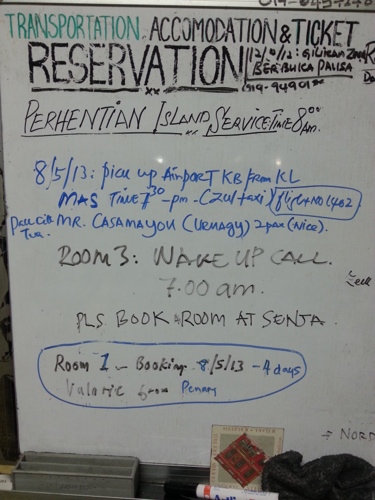 TRANSPORTATION, ACCOMODATION & TICKET
RESERVATION
12/0/12: GILIRAN
BERBUKA PUASA
019-94901
PERHENTIAN ISLAND SERVICE TIME 8:00 am.
8/5/13: PICK UP AIRPORT KB FROM KL
MAS TIME 7:30 -pm- flight no 1402
MR. CASAMAYOU 2 pax (Nice).
ROOM 3: WAKE UP CALL.
7.00 am.
PLS BOOK A ROOM AT SENJA.
Room 1 - Booking 8/5/13 - 4 days
Valaric from Penang
→ NORD